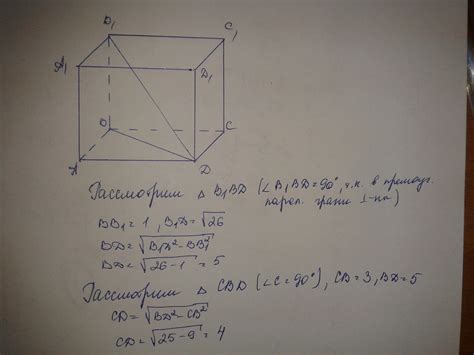 B₁ C₁
A₁ D₁
B C
A D
Рассмотрим △ B₁BD (∠B₁BD=90°, т.к. в прямоуг.
парал. грани ⊥-ны)
BB₁=1, B₁D=√26
BD=√B₁D²-BB₁²
BD=√26-1=5
Рассмотрим △ CBD (∠C=90°), CB=3, BD=5
CD=√BD²-CB²
CD=√25-9=4